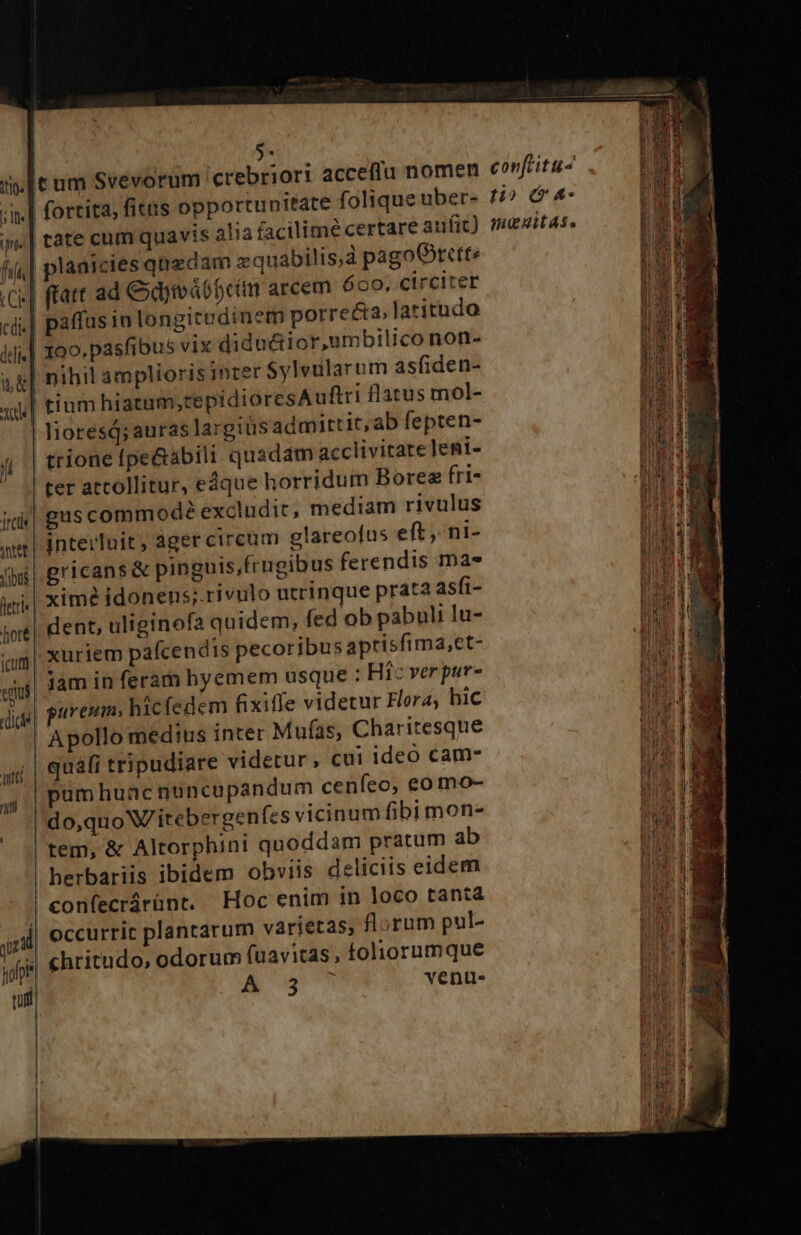 5.
tum Svevorum crebriori accessu nomen
fortita, ſitus opportunitate ſolique uber-
tate cum quavis alia facilimè certare auſit)
planicies quædam æquabilis, à pago Grett-
ſtatt ad Schwåbheim arcem 600, circiter
paſſus in longitudinem porrecta, latitudo
100, pasſibus vix diductior, umbilico non-
nihil amplioris inter Sylvularum asſiden-
tium hiatum, tepidiores Auſtri flatus mol-
lioresq́; auras largiùs admittit, ab ſepten-
trione ſpectabili quadam acclivitate leni-
ter attollitur, eáque horridum Boreæ fri-
gus commodè excludit, mediam rivulus
interluit, ager circum glareoſus eſt, ni-
gricans & pinguis, frugibus ferendis ma-
ximè idoneus; rivulo utrinque prata asſi-
dent, uliginoſa quidem, ſed ob pabuli lu-
xuriem paſcendis pecoribus aptisſima, et-
iam in feram hyemem usque : Hîc ver pur-
pureum, hîc ſedem fixiſſe videtur Flora, hîc
Apollo medius inter Muſas, Charitesque
quaſi tripudiare videtur, cui ideò cam-
pum hunc nuncupandum cenſeo, eo mo-
do, quo Witebergenſes vicinum ſibi mon-
tem, & Altorphini quoddam pratum ab
herbariis ibidem obviis deliciis eidem
conſecrârúnt. Hoc enim in loco tanta
occurrit plantarum varietas, florum pul-
chritudo, odorum ſuavitas, foliorumque
A 3 venu-
conſtitu-
tio & a-
mœnitas.